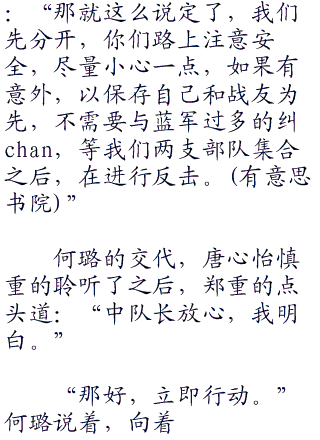 ：“那就这么说定了，我们
先分开，你们路上注意安
全，尽量小心一点，如果有
意外，以保存自己和战友为
先，不需要与蓝军过多的纠
chan，等我们两支部队集合
之后，在进行反击。(有意思
书院)”
何璐的交代，唐心怡慎
重的聆听了之后，郑重的点
头道：“中队长放心，我明
白。”
“那好，立即行动。”
何璐说着，向着